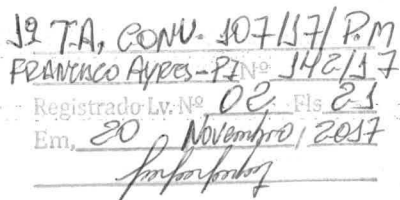 1º T.A, CONV. 107/17/P.M
FRANCISCO AYRES-PI Nº 142/17
Registrado Lv. Nº 02 Fls 21
Em, 20 Novembro, 2017